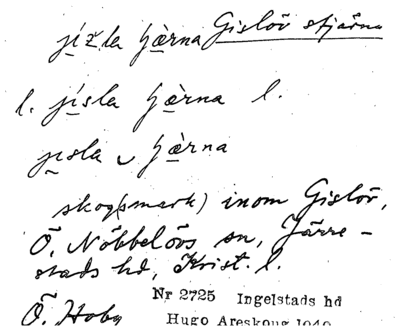 jízla hærna Gislöv stjärna
l. jísla hærna l.
jısla ‿ hærna
skog(smark) inom Gislöv,
Ö. Nöbbelövs sn, Järre-
stads hd, Krist. l.
Ö. Hoby
Nr 2725 Ingelstads hd
Hugo Areskoug 1940